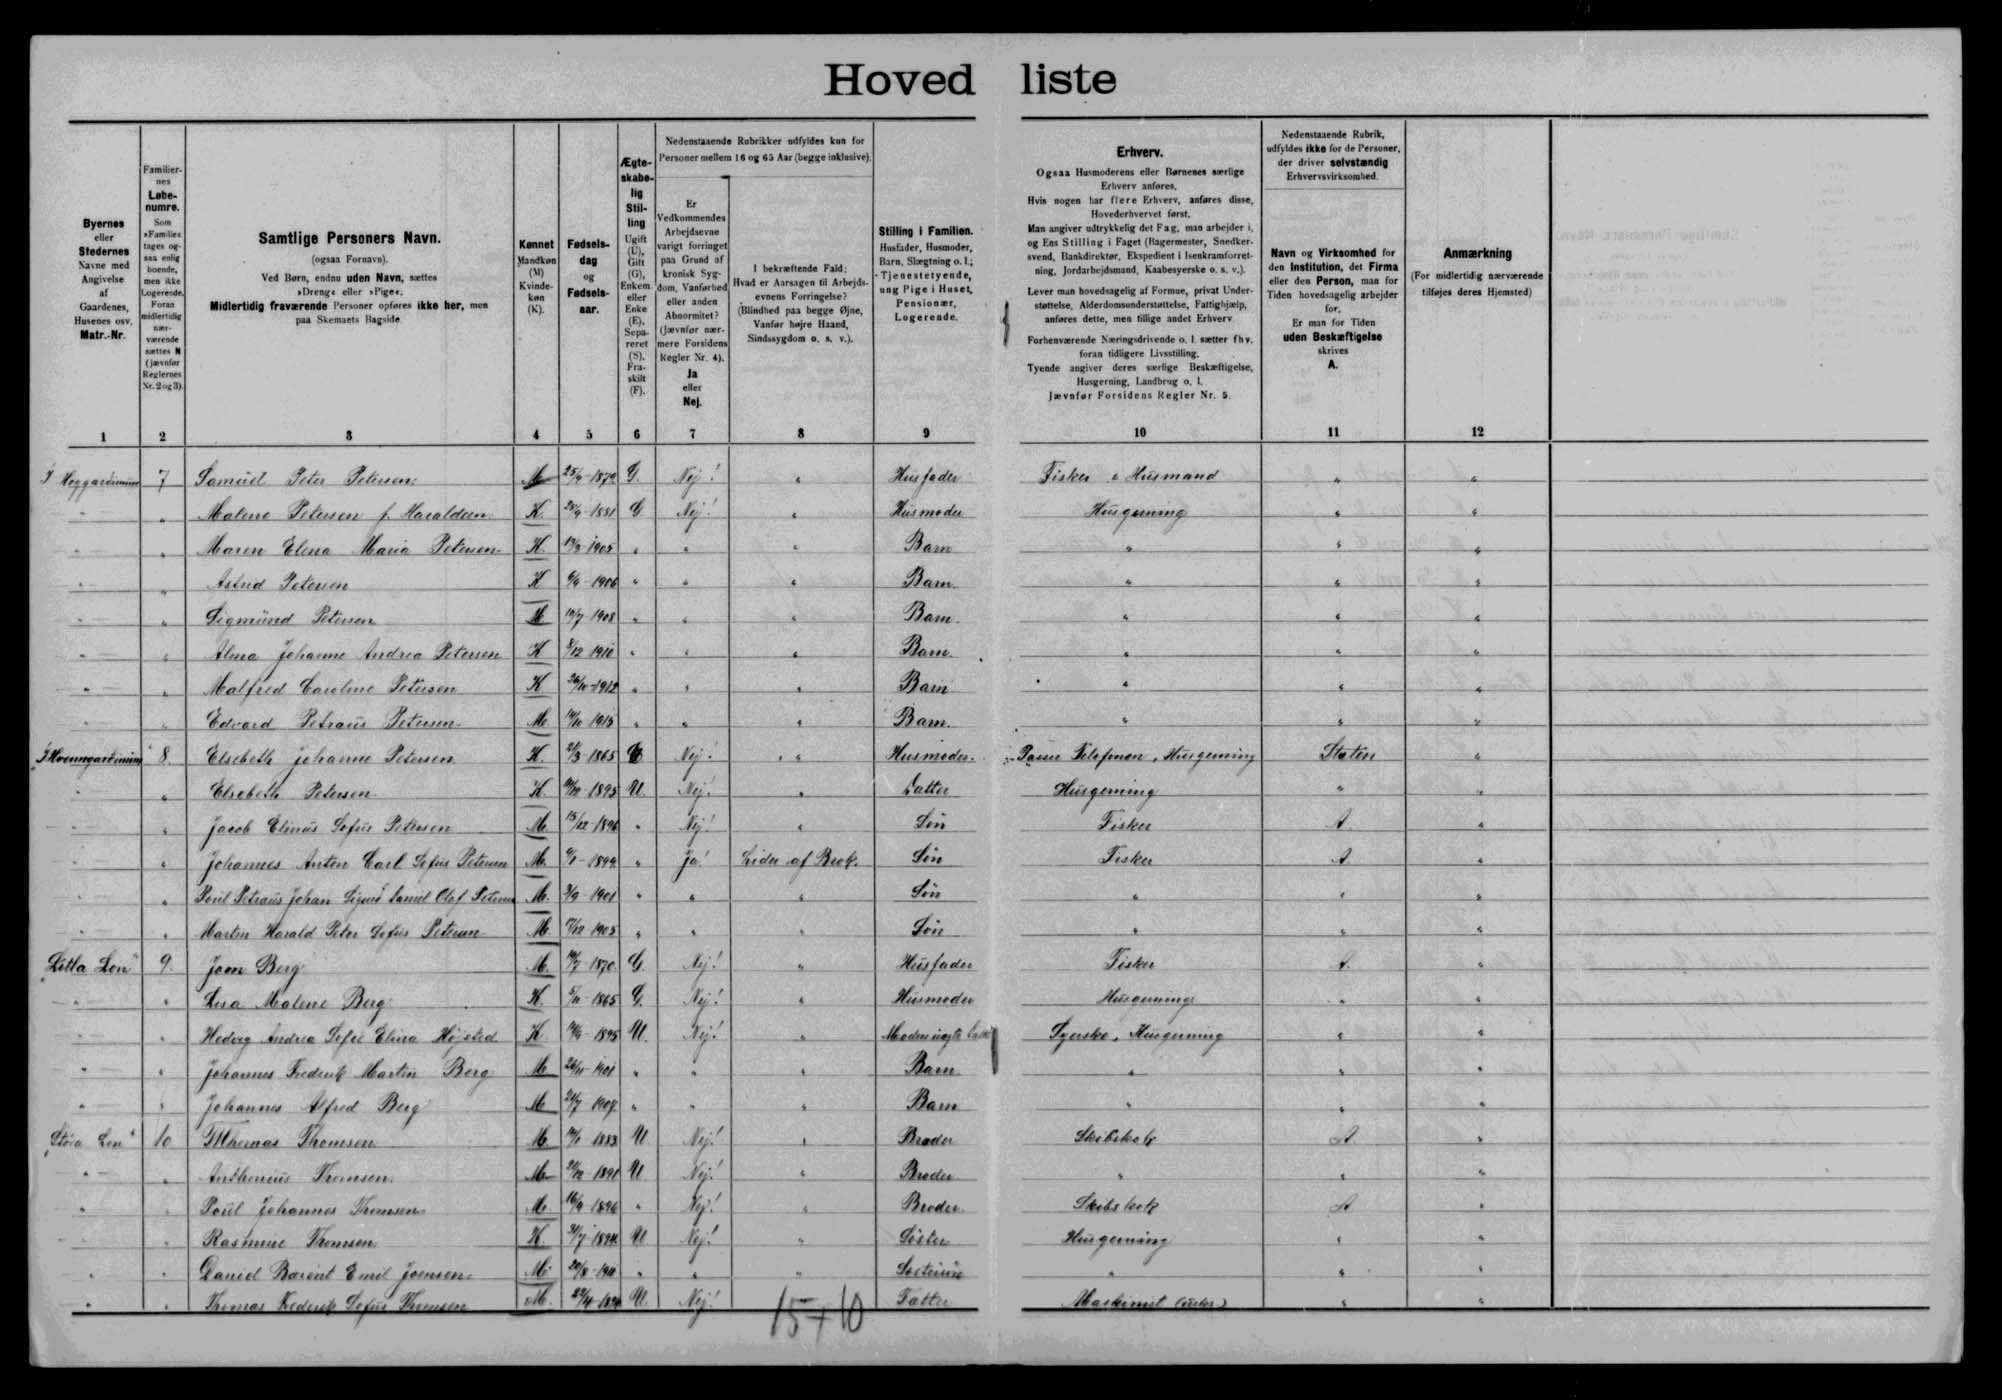 Hoved liste
Byernes eller Stedernes Navne med Angivelse af Gaardenes, Husenes osv. Matr.-Nr.
Familiernes Løbenumre. Som »Familie« tages ogsaa enlig boende, men ikke Logerende. Foran midlertidig nærværende sættes N (jævnfør Reglernes Nr. 2 og 3).
Samtlige Personers Navn. (ogsaa Fornavn). Ved Børn, endnu uden Navn, sættes »Dreng« eller »Pige«. Midlertidig fraværende Personer opføres ikke her, men paa Skemaets Bagside.
Kønnet Mandkøn (M) Kvindekøn (K).
Fødselsdag og Fødselsaar.
Ægteskabelig Stilling Ugift (U), Gift (G), Enkem. eller Enke (E), Separeret (S), Fraskilt (F).
Nedenstaaende Rubrikker udfyldes kun for Personer mellem 16 og 65 Aar (begge inklusive).
Er Vedkommendes Arbejdsevne varigt forringet paa Grund af kronisk Sygdom, Vanførhed eller anden Abnormitet? (Jævnfør nærmere Forsidens Regler Nr. 4). Ja eller Nej.
I bekræftende Fald: Hvad er Aarsagen til Arbejdsevnens Forringelse? (Blindhed paa begge Øjne, Vanfør højre Haand, Sindssygdom o. s. v.).
Stilling i Familien. Husfader, Husmoder, Barn, Slægtning o. l.; Tjenestetyende, ung Pige i Huset, Pensionær, Logerende.
Erhverv. Ogsaa Husmoderens eller Børnenes særlige Erhverv anføres. Hvis nogen har flere Erhverv, anføres disse, Hovederhvervet først. Man angiver udtrykkelig det Fag, man arbejder i, og Ens Stilling i Faget (Bagermester, Snedkersvend, Bankdirektør, Ekspedient i Isenkramforretning, Jordarbejdsmand, Kaabesyerske o. s. v.). Lever man hovedsagelig af Formue, privat Understøttelse, Alderdomsunderstøttelse, Fattighjælp, anføres dette, men tillige andet Erhverv. Forhenværende Næringsdrivende o. l. sætter fhv. foran tidligere Livsstilling. Tyende angiver deres særlige Beskæftigelse, Husgerning, Landbrug o. l. Jævnfør Forsidens Regler Nr. 5.
Nedenstaaende Rubrik, udfyldes ikke for de Personer, der driver selvstændig Erhvervsvirksomhed.
Navn og Virksomhed for den Institution, det Firma eller den Person, man for Tiden hovedsagelig arbejder for. Er man for Tiden uden Beskæftigelse skrives A.
Anmærkning (For midlertidig nærværende tilføjes deres Hjemsted)
1 2 3 4 5 6 7 8 9 10 11 12
7 Samuel Peter Petersen M G. Nej! " Husfader Fisker & Husmand " "
" " Malene Petersen f. Haraldsen K. 1881 G. Nej! " Husmoder Husgerning " "
" " Maren Elena Maria Petersen K. 1905 " " " Barn " " "
" " Astrid Petersen K 1906 " " " Barn. " " "
" " Sigmund Petersen M 10/7-1908 " " " Barn. " " "
" " Alma Johanne Andrea Petersen K 8/12 1910 " " " Barn. " " "
" " Malfred Caroline Petersen K 1912 " " " Barn " " "
" " Edvard Petraus Petersen M. 1915 " " " Barn. " " "
8. Elsebeth Johanne Petersen K. 2/3-1865 E Nej! " Husmoder. Passer Telefonen, Husgerning Staten "
" " Elsebeth Petersen K. 1895 U. Nej! " Datter Husgerning " "
" " Jacob Elinus Sofus Petersen M. 15/12-1896 " Nej! " Søn Fisker A. "
" " Johannes Anton Carl Sofus Petersen M. 1899 " Ja! Lider af Brok. Søn Fisker A. "
" " Poul Petraus Johan Sigurd Samuel Olaf Petersen M. 3/9-1901 " " " Søn " " "
" " Martin Harald Peter Sofus Petersen M. 1905 " " " Søn " " "
"Litla Lon" 9. Joen Berg M. 1870. G. Nej! " Husfader Fisker A. "
" " Malene Berg K. 1865 G. Nej! " Husmoder Husgerning " "
" " Hedvig Andrea Sofie Elina Højsted K. 1895 U. Nej! " Moders uægte Syerske, Husgerning " "
" " Johannes Frederik Martin Berg M 1901 " " " Barn " " "
" " Johannes Alfred Berg M 1907 " " " Barn " " "
"Stóra Lon" 10 Thomas Thomsen M. 1883 U. Nej! " Broder Skibskok A "
" " Anthonius Thomsen. M. 1891 U. Nej! " Broder " " "
" " Poul Johannes Thomsen M. 16/9-1896 " Nej! " Broder Skibskok A "
" " Rasmine Thomsen K. 1894 U. Nej! " Søster Husgerning " "
" " Daniel Barent Emil Joensen. M. 20/8-1911 " " " Søstersøn " " "
" " Thomas Frederik Sofus Thomsen M. U. Nej! Fætter Maskinist " "
15+10